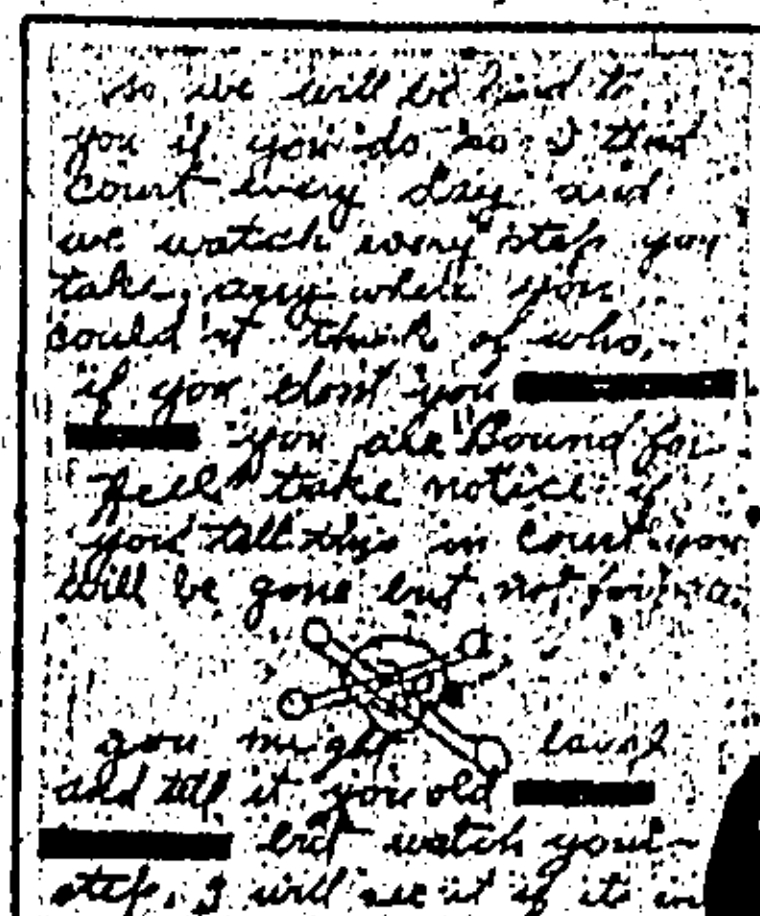 so we will be kind to
you if you do so. I tend
court every day and
we watch every step you
take, any where you
could n't think of who,
if you dont you
you are Bound for
Hell take notice if
you tell this in Court you
will be gone but not
you might laugh
and tell it you old
but watch your
step, I will see it if its in